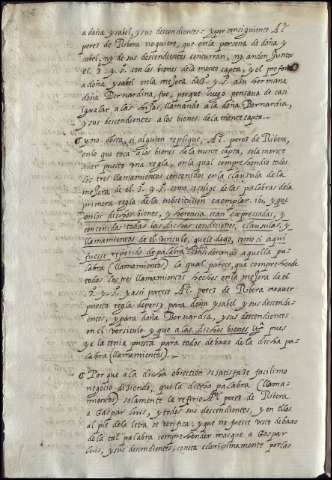 a doña ysabel, y sus descendientes: y por consiguiente Al.º
peres de Ribera no quiere, que en la persona de doña y
sabel, ny de sus descendientes concurran, ny anden junto
el 3.º y 5.º con los bienes de la mente capta, y el
a doña ysabel en la mejora del 3.º y 5.º a su hermana
doña Bernardina, fue, porque luego pensava de
igualar a las dos, llamando a la doña Bernardina,
y sus descendientes a los bienes de la mente capta.
y no obsta, si alguien replique, Al.º peres de Ribera,
en lo que toca a los bienes de la mente capta, sola
aver puesto una regla, en la qual comprehendio todos
los tres llamamientos contenidos en la clausula de la
mejora de el 3.º y 5.º como se colige de las palabras de la
primera regla de la substitucion exemplar. ibi, y q en
los dichos bienes, y herencia sean expresadas, y
entendidas todas las dichas condiciones, clausulas, y
llamamientos de el vinculo, que le dexo, como si aqui
fuesse repetido de palabra. Considerando aquella pa-
labra (llamamientos) la qual parece, que comprehende
todos los tres llamamientos hechos en la mejora de el
3.º y 5.º y assi parece Al.º peres de Ribera no aver
puesta regla, de per si, para doña ysabel y sus descendien-
tes, y para doña Bernardina, y sus descendientes
en el versiculo y que a los dichos bienes &.ª pues
ya la tenia puesta para todos debaxo de la dicha pa-
labra (llamamientos).
Porque a la dicha objection se satisfaze facilimo
negocio diziendo, que la dicha palabra (llama-
mientos) solamente la refirio Al.º peres de Ribera,
a Gaspar y todos sus descendientes, y en ellos
al pie de la letra se verifica: y que no puesse este debaxo
de la tal palabra comprehender mas que a Gaspar
y sus descendientes, consta clarissimamente por las